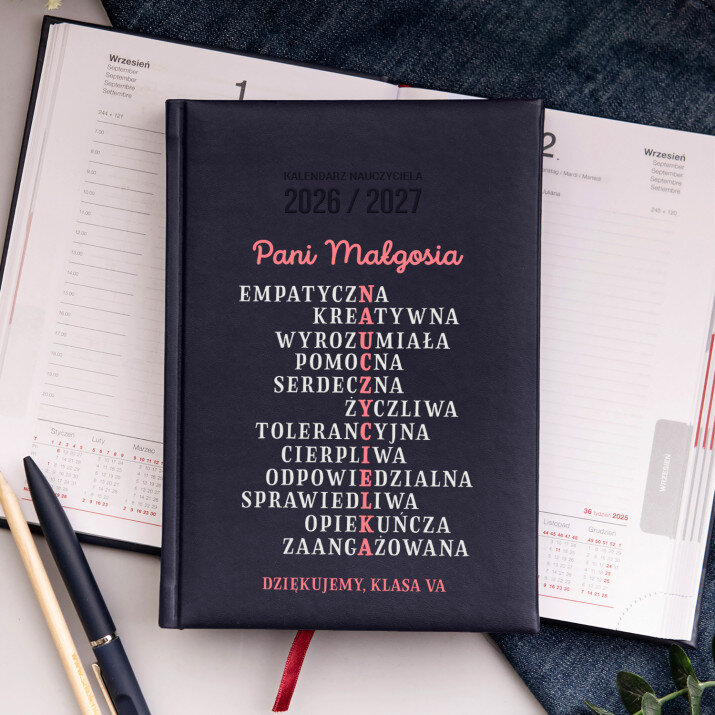 KALENDARZ NAUCZYCIELA
2026 / 2027
Pani Małgosia
EMPATYCZNA
KREATYWNA
WYROZUMIAŁA
POMOCNA
SERDECZNA
ŻYCZLIWA
TOLERANCYJNA
CIERPLIWA
ODPOWIEDZIALNA
SPRAWIEDLIWA
OPIEKUŃCZA
ZAANGAŻOWANA
DZIĘKUJEMY, KLASA VA
Wrzesień
September
September
Septembre
Settembre
1
244 • 121
7.00
8.00
9.00
10.00
11.00
12.00
13.00
14.00
15.00
16.00
17.00
18.00
19.00
20.00
Styczeń
Luty
Marzec
2.
Wrzesień
September
September
Septembre
Settembre
245 • 120
WRZESIEŃ
36 tydzień 2025
Listopad
Grudzień